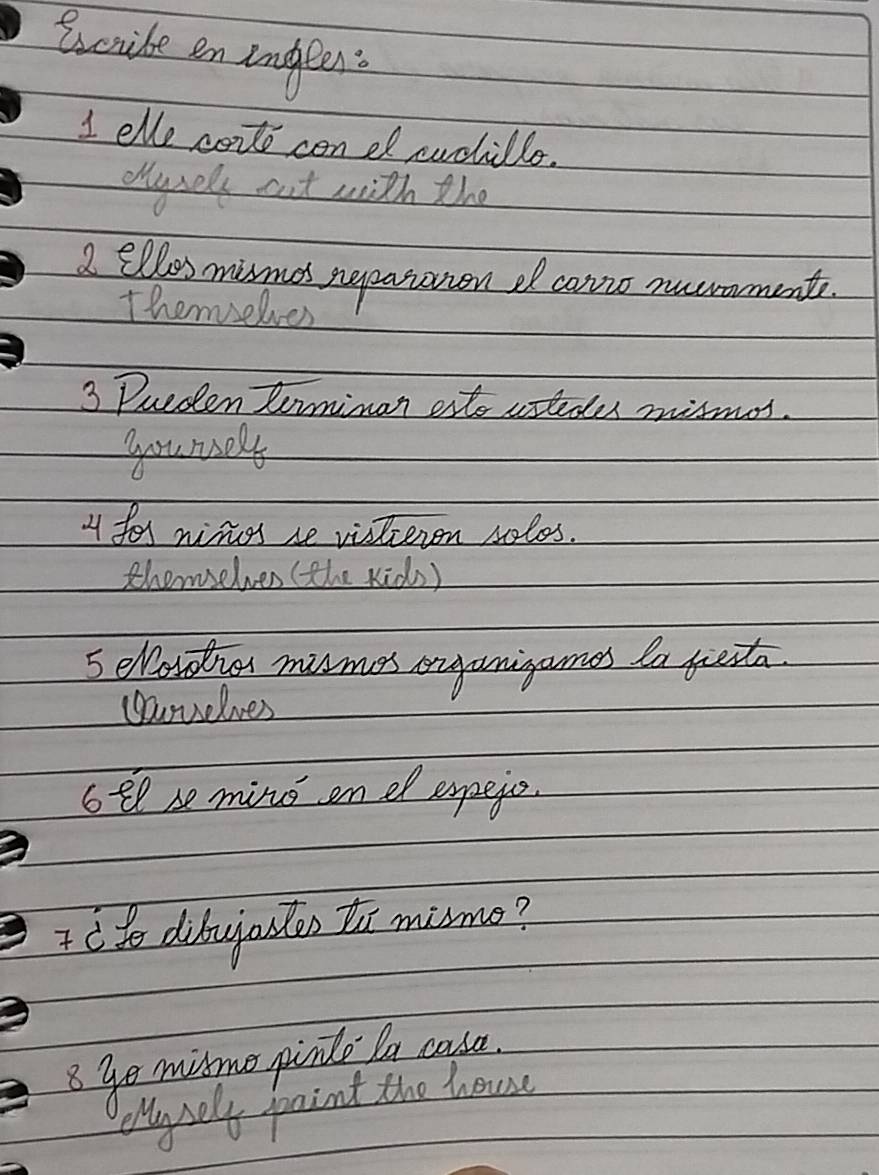 Escribe en ingles:
1 Me corté con el cuchillo.
Myself cut with the
2 Ellos mismos repararon el carro nuevamente.
Themselves
3 Pueden terminar esto ustedes mismos.
yourself
4 Los niños se vistieron solos.
themselves (the kids)
5 Nosotros mismos organizamos la fiesta.
Ourselves
6 Él se miró en el espejo.
7 ¿Lo dibujastes tú mismo?
8 Yo mismo pinté la casa.
Myself paint the house